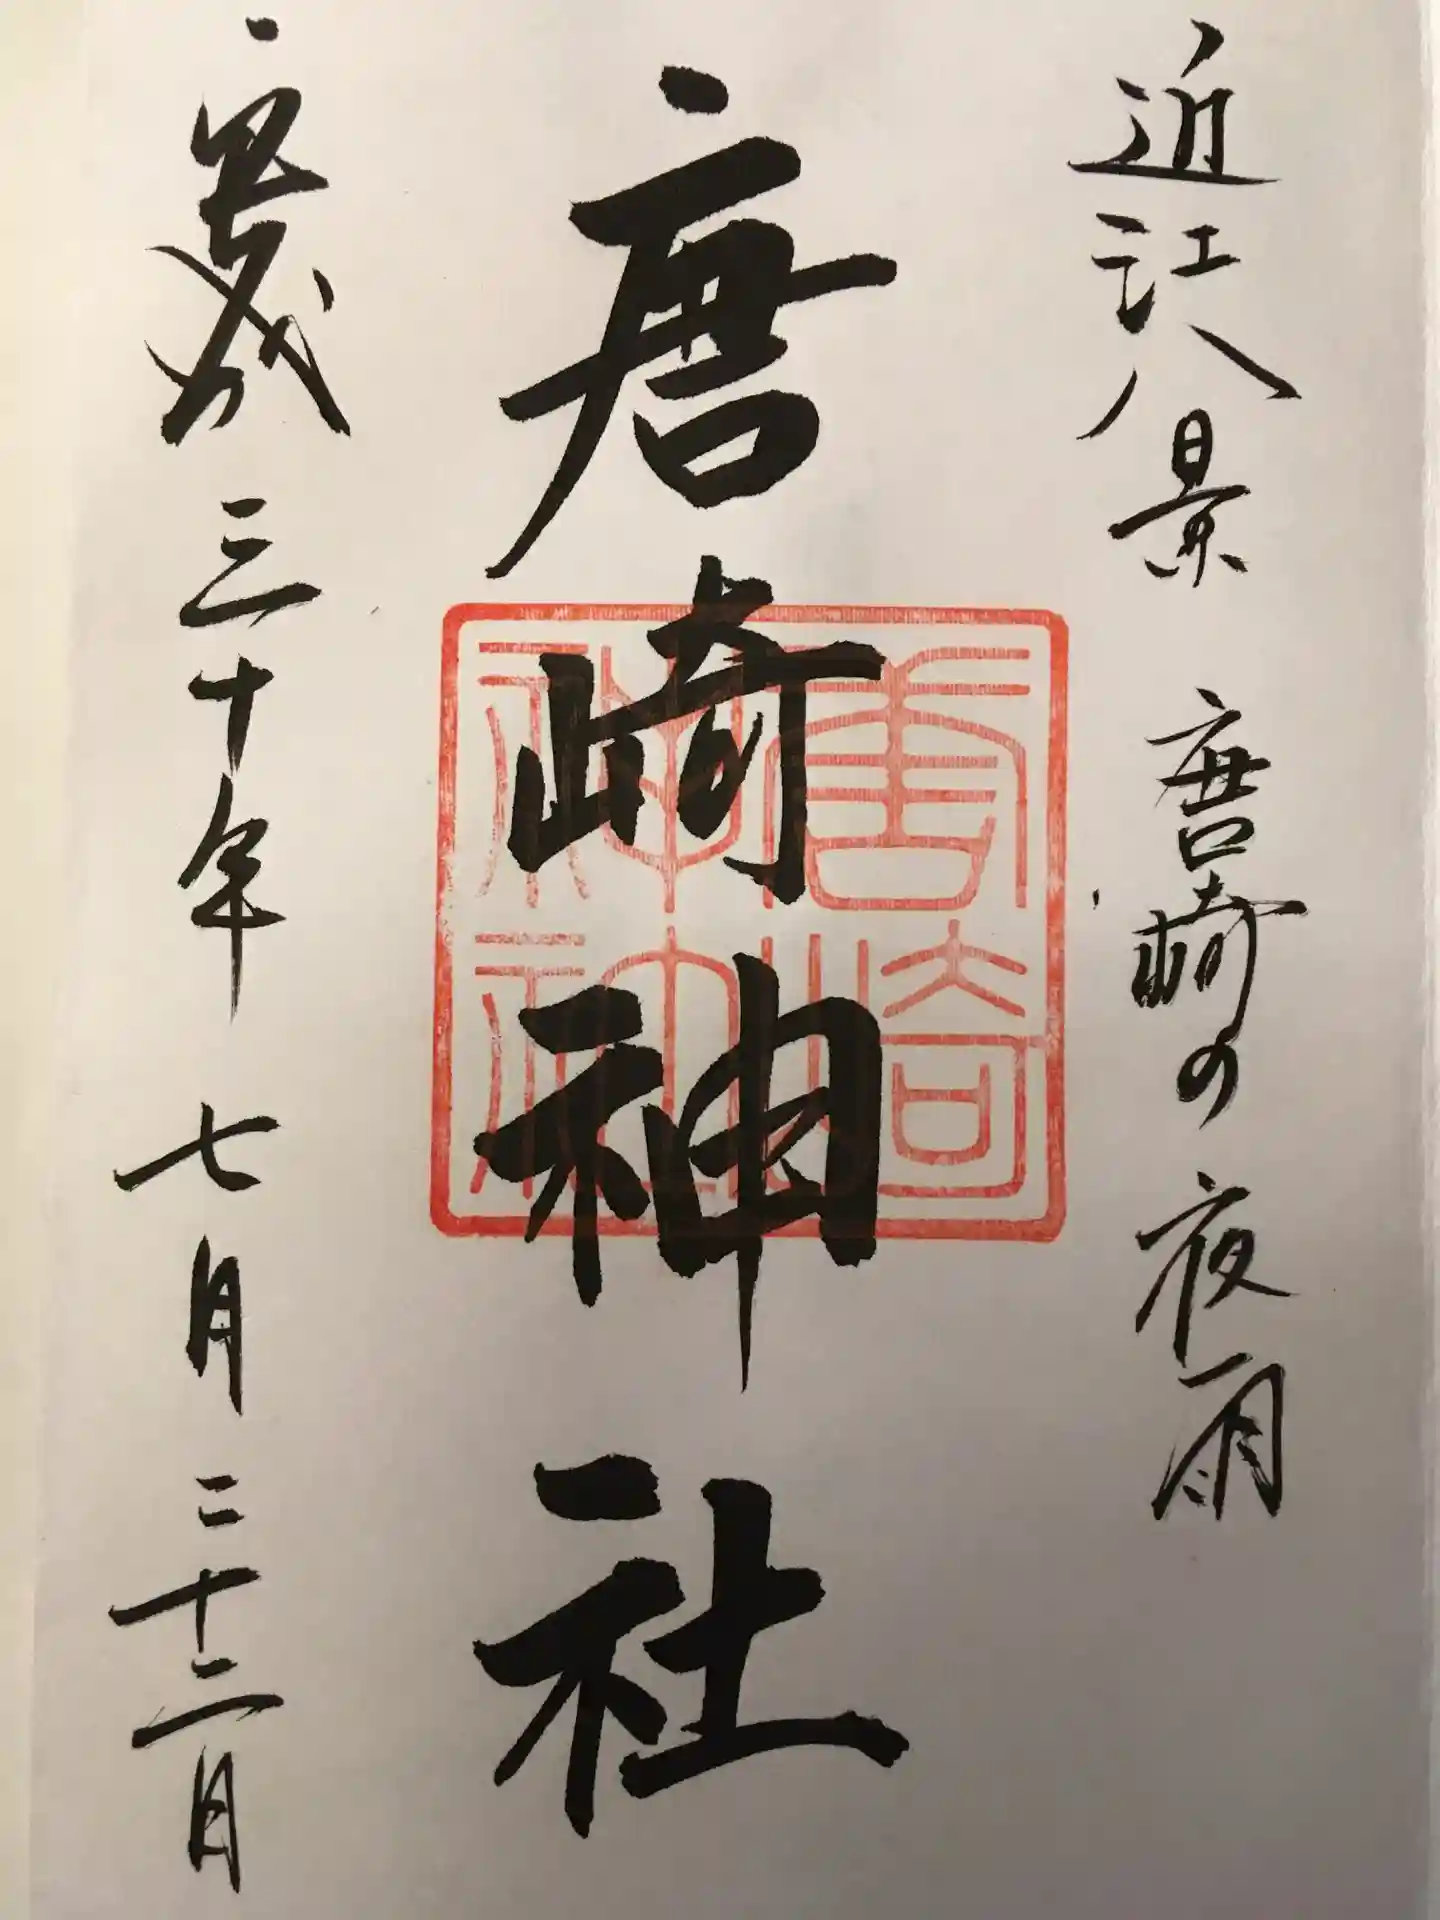 近江八景 唐崎の夜雨
唐崎神社
平成三十年 七月二十二日
唐崎
神社